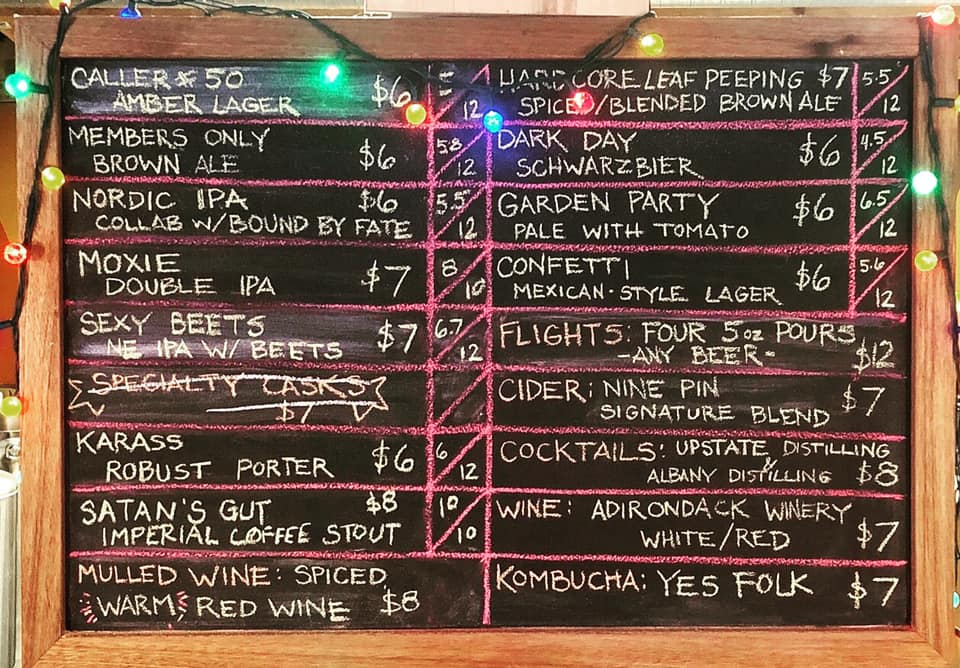 CALLER # 50 $6
AMBER LAGER 12
MEMBERS ONLY 5.8
BROWN ALE $6 12
NORDIC IPA $6 5.5
COLLAB W/BOUND BY FATE 12
MOXIE 8
DOUBLE IPA $7 10
SEXY BEETS $7 6.7
NE IPA W/ BEETS 12
SPECIALTY CASKS
$7
KARASS 6
ROBUST PORTER $6 12
SATAN'S GUT $8 10
IMPERIAL COFFEE STOUT 10
MULLED WINE: SPICED
WARM RED WINE $8
HARDCORE LEAF PEEPING $7 5.5
SPICED/BLENDED BROWN ALE 12
DARK DAY $6 4.5
SCHWARZBIER 12
GARDEN PARTY $6 6.5
PALE WITH TOMATO 12
CONFETTI $6 5.6
MEXICAN-STYLE LAGER 12
FLIGHTS: FOUR 5oz POURS
-ANY BEER- $12
CIDER: NINE PIN $7
SIGNATURE BLEND
COCKTAILS: UPSTATE DISTILLING
& ALBANY DISTILLING $8
WINE: ADIRONDACK WINERY
WHITE/RED $7
KOMBUCHA: YES FOLK $7